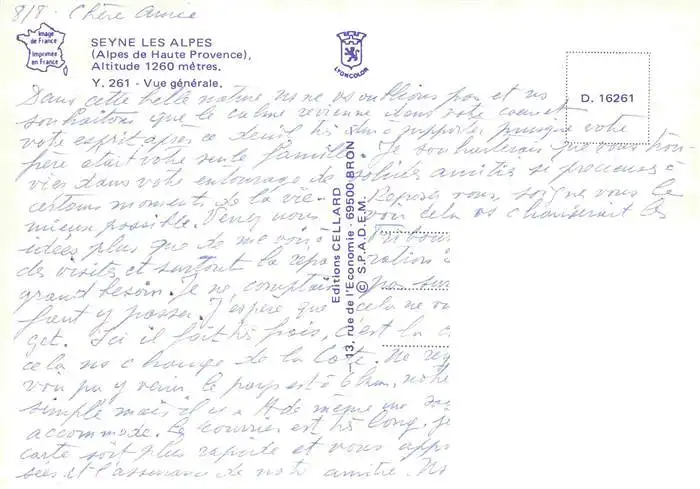 8/8 - Chère Amie
Image
de France
Imprimée
en France
SEYNE LES ALPES
(Alpes de Haute Provence),
Altitude 1260 mètres.
Y. 261 - Vue générale.
LYONCOLOR
D. 16261
Editions CELLARD
— 13, rue de l'Economie - 69500 BRON
© S.P.A.D.E.M.
Dans cette belle nature ns ne vs oublions pas et ns
souhaitons que le calme revienne dans votre coeur et
votre esprit après ce deuil très dur à supporter puisque votre
frère était votre seule famille. Je souhaiterais que vous trou-
viez dans votre entourage de solides amitiés si précieuses à
certains moments de la vie. Reposez vous, soignez vous le
mieux possible. Venez nous voir cela vs changerait les
idées plus que de me voir à
des visites et surtout la
grand besoin. Je ne comptais pas sur
faut y passer. J'espère que cela ne
Ici il fait très frais, c'est la
cela ns change de la Côte. Ne
pays est à 6 km, notre
simple mais il y a de même
accommode. Le courrier est très long,
carte soit plus rapide et vous
et l'assurance de notre amitié. Ns